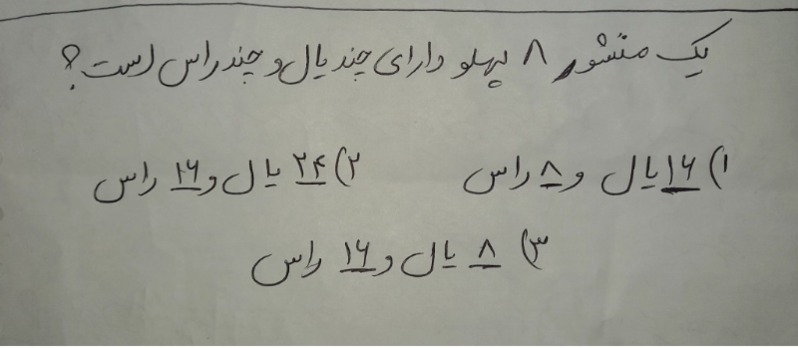 یک منشور ۸ پهلو دارای چند یال و چند راس است؟
۱) ۱۶ یال و ۸ راس ۲) ۲۴ یال و ۱۶ راس
۳) ۸ یال و ۱۶ راس